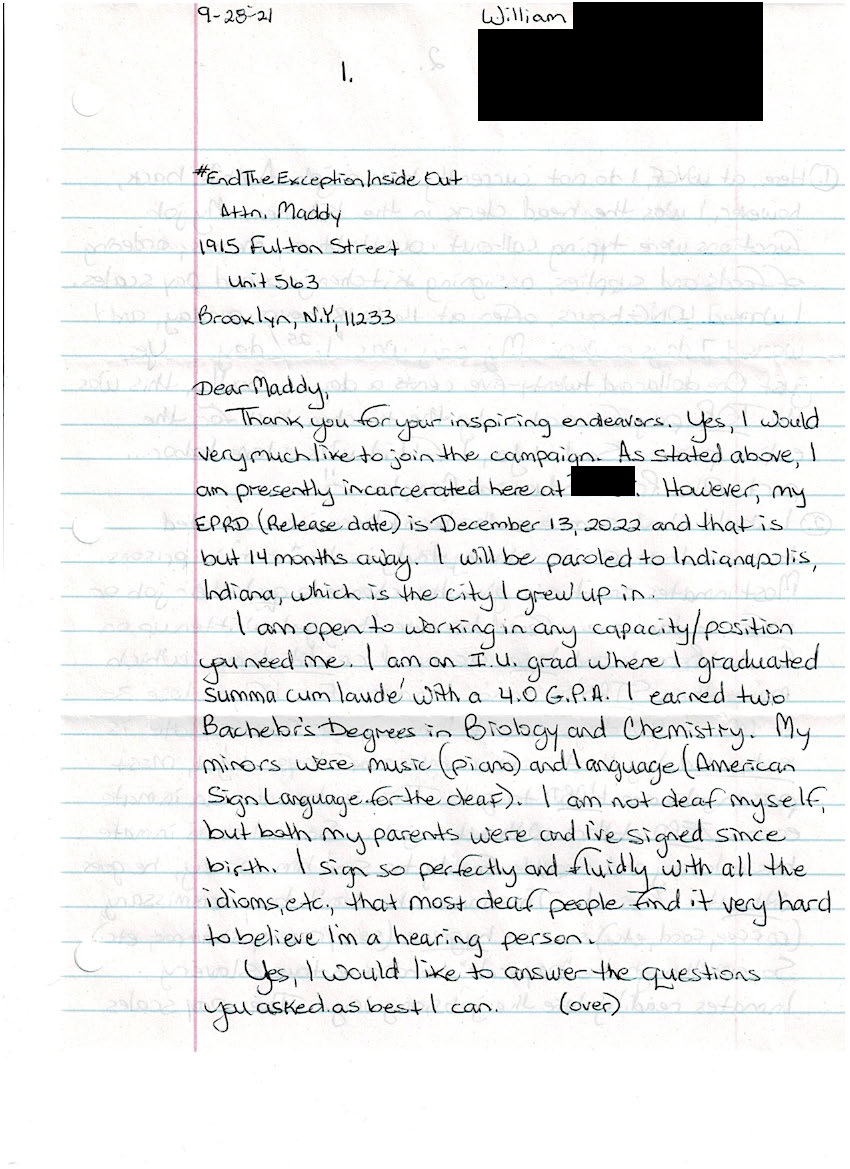 9-28-21 William
1.
#EndTheExceptionInside Out
Attn. Maddy
1915 Fulton Street
Unit 563
Brooklyn, N.Y, 11233
Dear Maddy,
Thank you for your inspiring endeavors. Yes, I would
very much like to join the campaign. As stated above, I
am presently incarcerated here at . However, my
EPRD (Release date) is December 13, 2022 and that is
but 14 months away. I will be paroled to Indianapolis,
Indiana, which is the city I grew up in.
I am open to working in any capacity/position
you need me. I am an I.U. grad where I graduated
summa cum laude' with a 4.0 G.P.A. I earned two
Bachelor's Degrees in Biology and Chemistry. My
minors were music (piano) and language (American
Sign Language for the deaf). I am not deaf myself,
but both my parents were and I've signed since
birth. I sign so perfectly and fluidly with all the
idioms, etc., that most deaf people find it very hard
to believe I'm a hearing person.
Yes, I would like to answer the questions
you asked as best I can. (over)